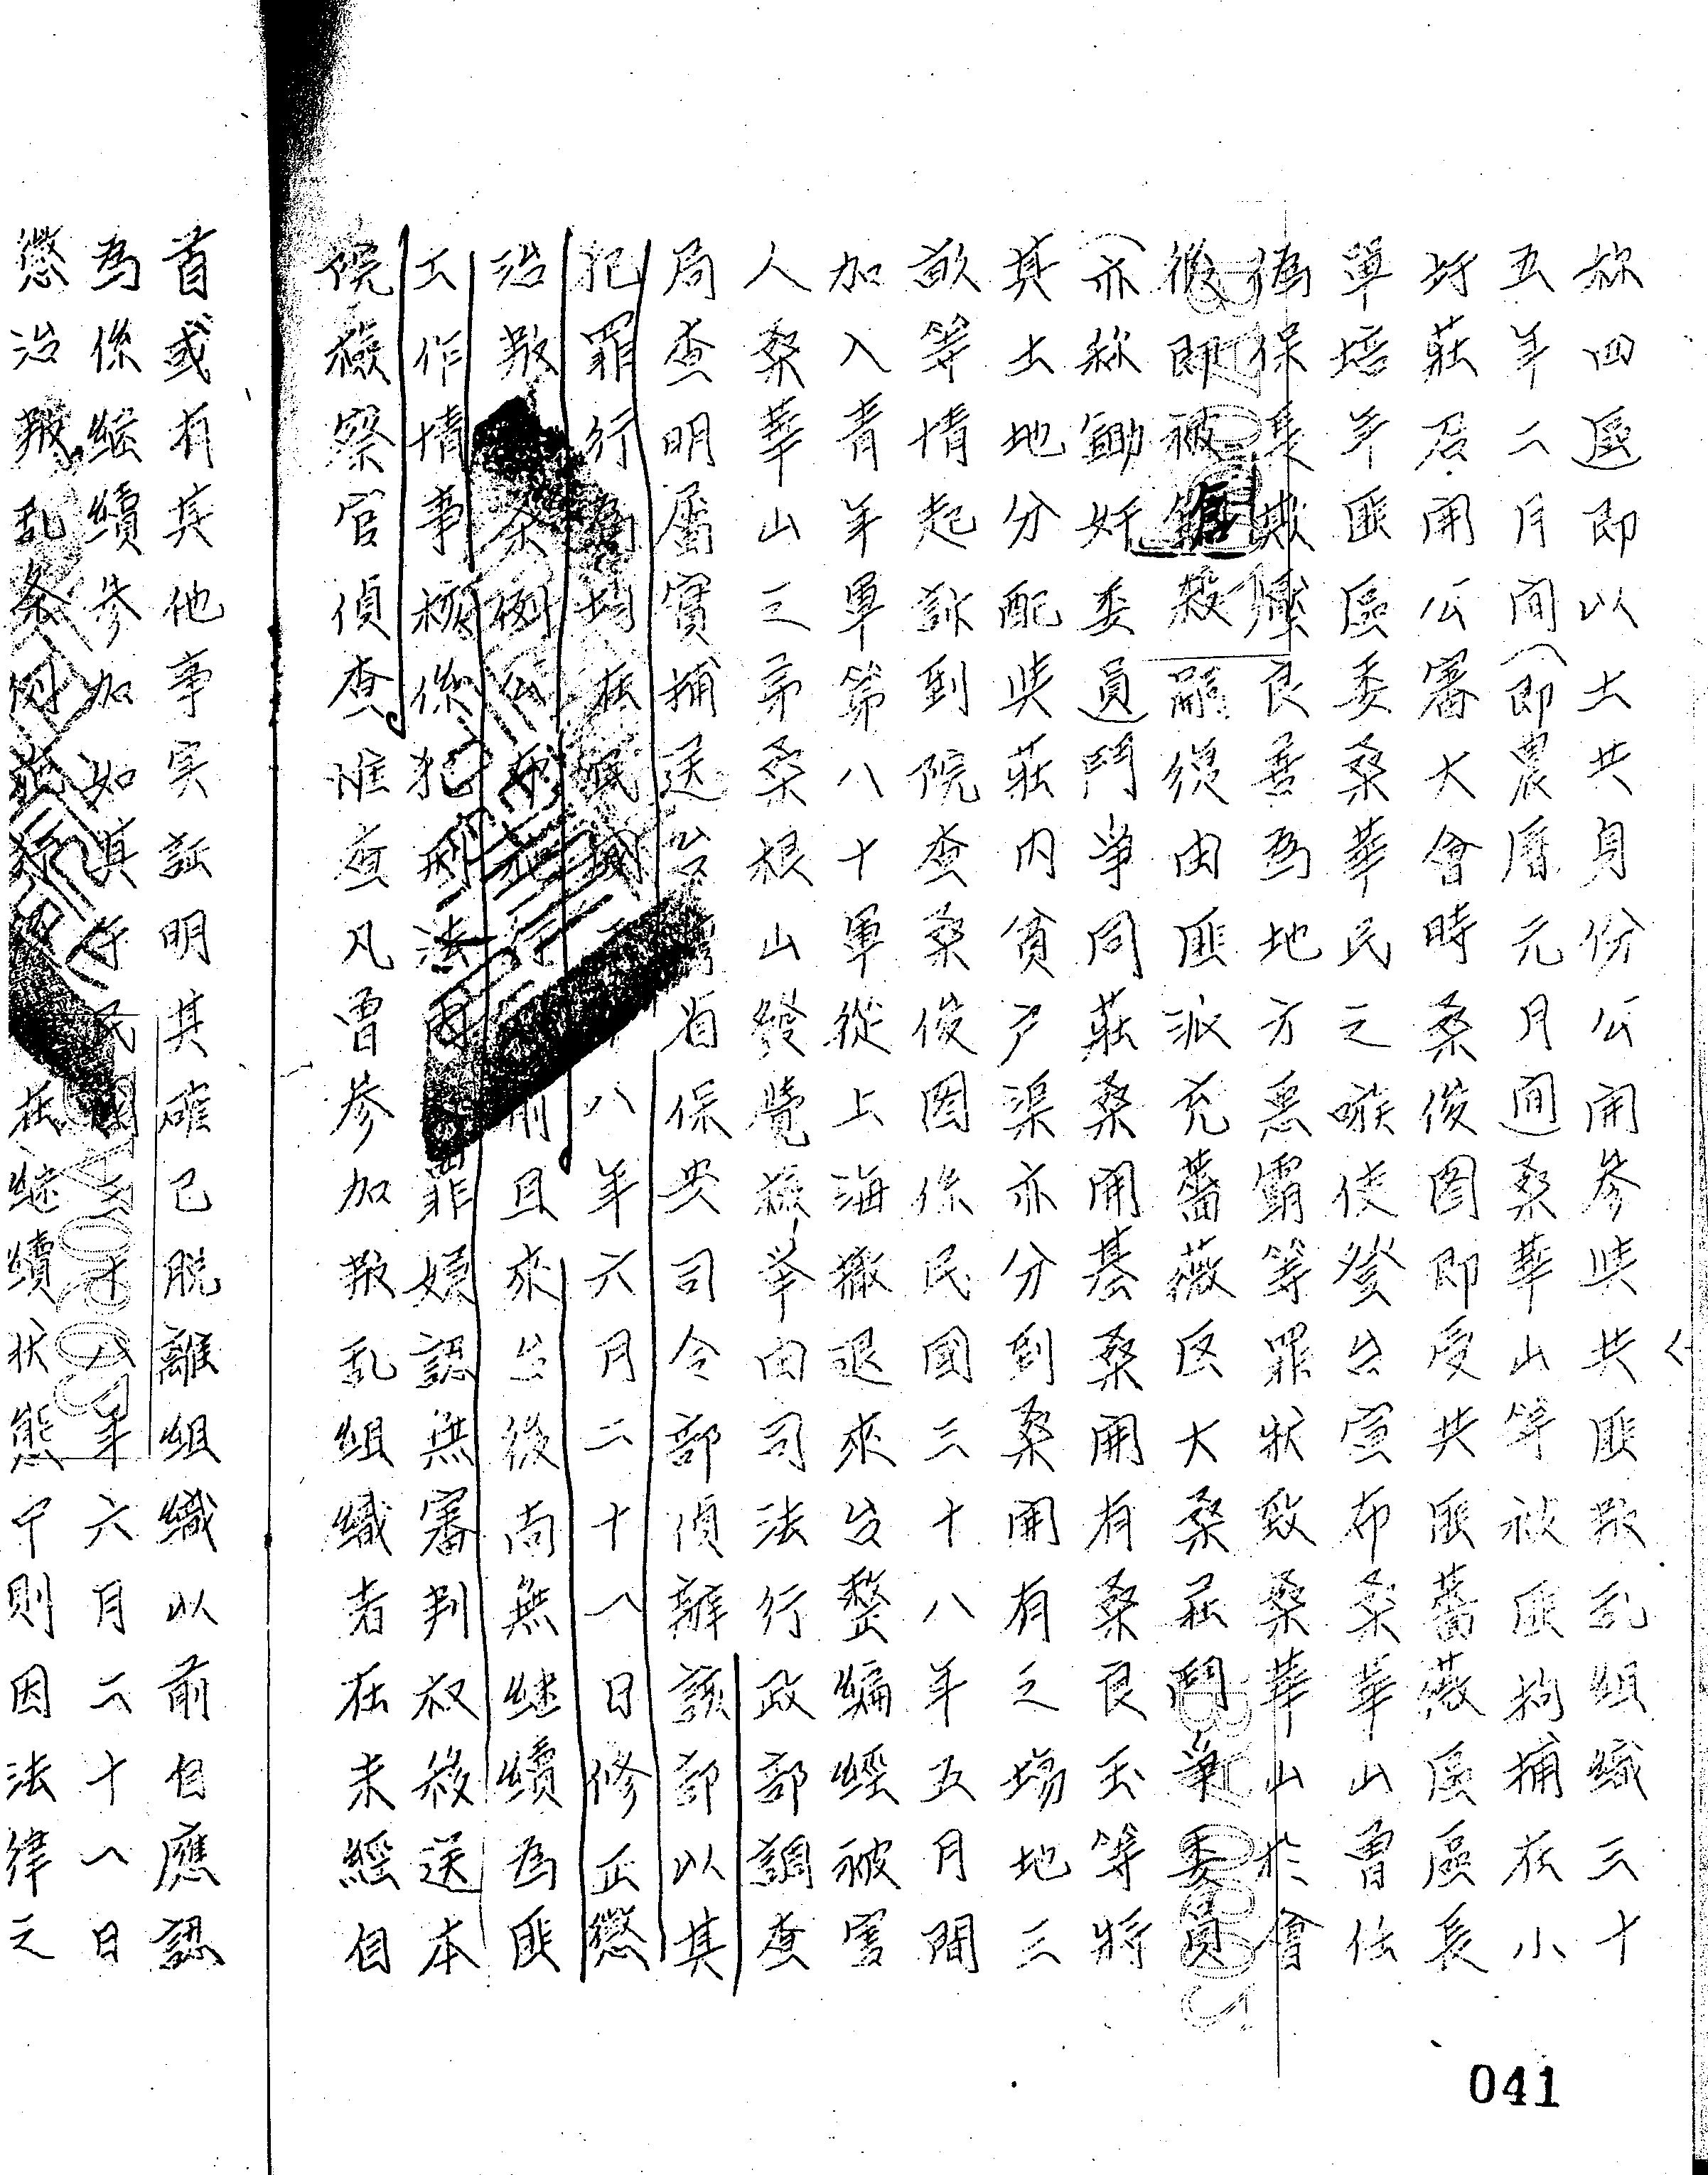 称四區即以士共身份公開參與共匪叛乱組織三十
五年二月间(即農厝元月间)桑華山等被匪拘捕在小
圩莊召開公審大會時桑俊图即受共匪薔薇區區長
單培年匪區委桑華民之嗾使登台宣布桑華山曾任
偽保長欺壓良善為地方惡霸等罪狀致桑華山於會
後即被鎗殺嗣後由匪派充薔薇区大桑莊鬥争委員
(亦称鋤奸委員)鬥争同莊桑開基桑開有桑良玉等將
其土地分配與莊内貧户渠亦分到桑開有之場地三
畝等情起訴到院查桑俊图係民國三十八年五月間
加入青年軍第八十軍從上海撤退來台整編經被害
人桑華山之弟桑根山發覺檢举由司法行政部調查
局查明屬實捕送台灣省保安司令部偵辦該部以其
犯罪行為均在民國三十八年六月二十一日修正懲
治叛乱条例公布施行以前且來台後尚無继續為匪
工作情事核係犯刑法内乱罪嫌認無審判权移送本
院檢察官偵查惟查凡曾參加叛乱組織者在未經自
首或有其他事实証明其確已脱離組織以前自應認
為係继續参加如其在民國三十八年六月二十一日
懲治叛乱条例施行後仍在继續状態中則因法律之
041